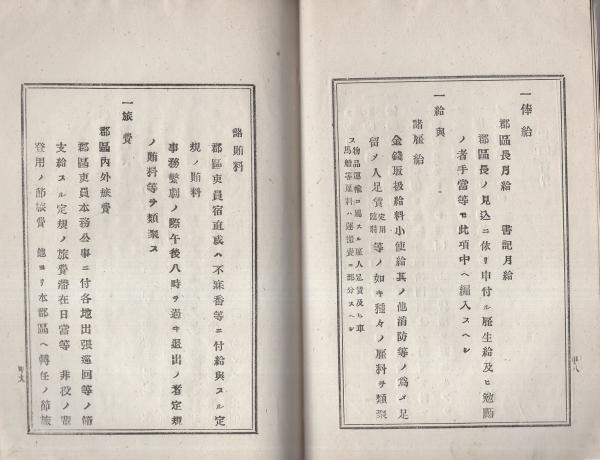 一俸給
郡區長月給　書記月給
郡區長ノ見込ニ依リ申付ル雇生給及ヒ
ノ者手當等モ此項中ヘ編入スヘシ
一給與
諸雇給
金錢取扱給料小使給其ノ他消防等ノ爲メ足
留メ人足賃定用臨時等ノ如キ種々ノ雇料ヲ類聚
ス物品運輸ニ屬スル雇人足賃及ヒ車馬船等雇料ハ運搬費ニ部分スヘシ
甲八
諸賄料
郡區吏員宿直或ハ不寐番等ニ付給與スル定
規ノ賄料
事務繁劇ノ際午後八時ヲ過キ退出ノ者定規
ノ賄料等ヲ類聚ス
一旅費
郡區內外旅費
郡區吏員本務公事ニ付各地出張巡回等ノ節
支給スル定規ノ旅費滯在日當等　非役ノ輩
登用ノ節旅費　他ヨリ本郡區ヘ轉任ノ節旅
甲九